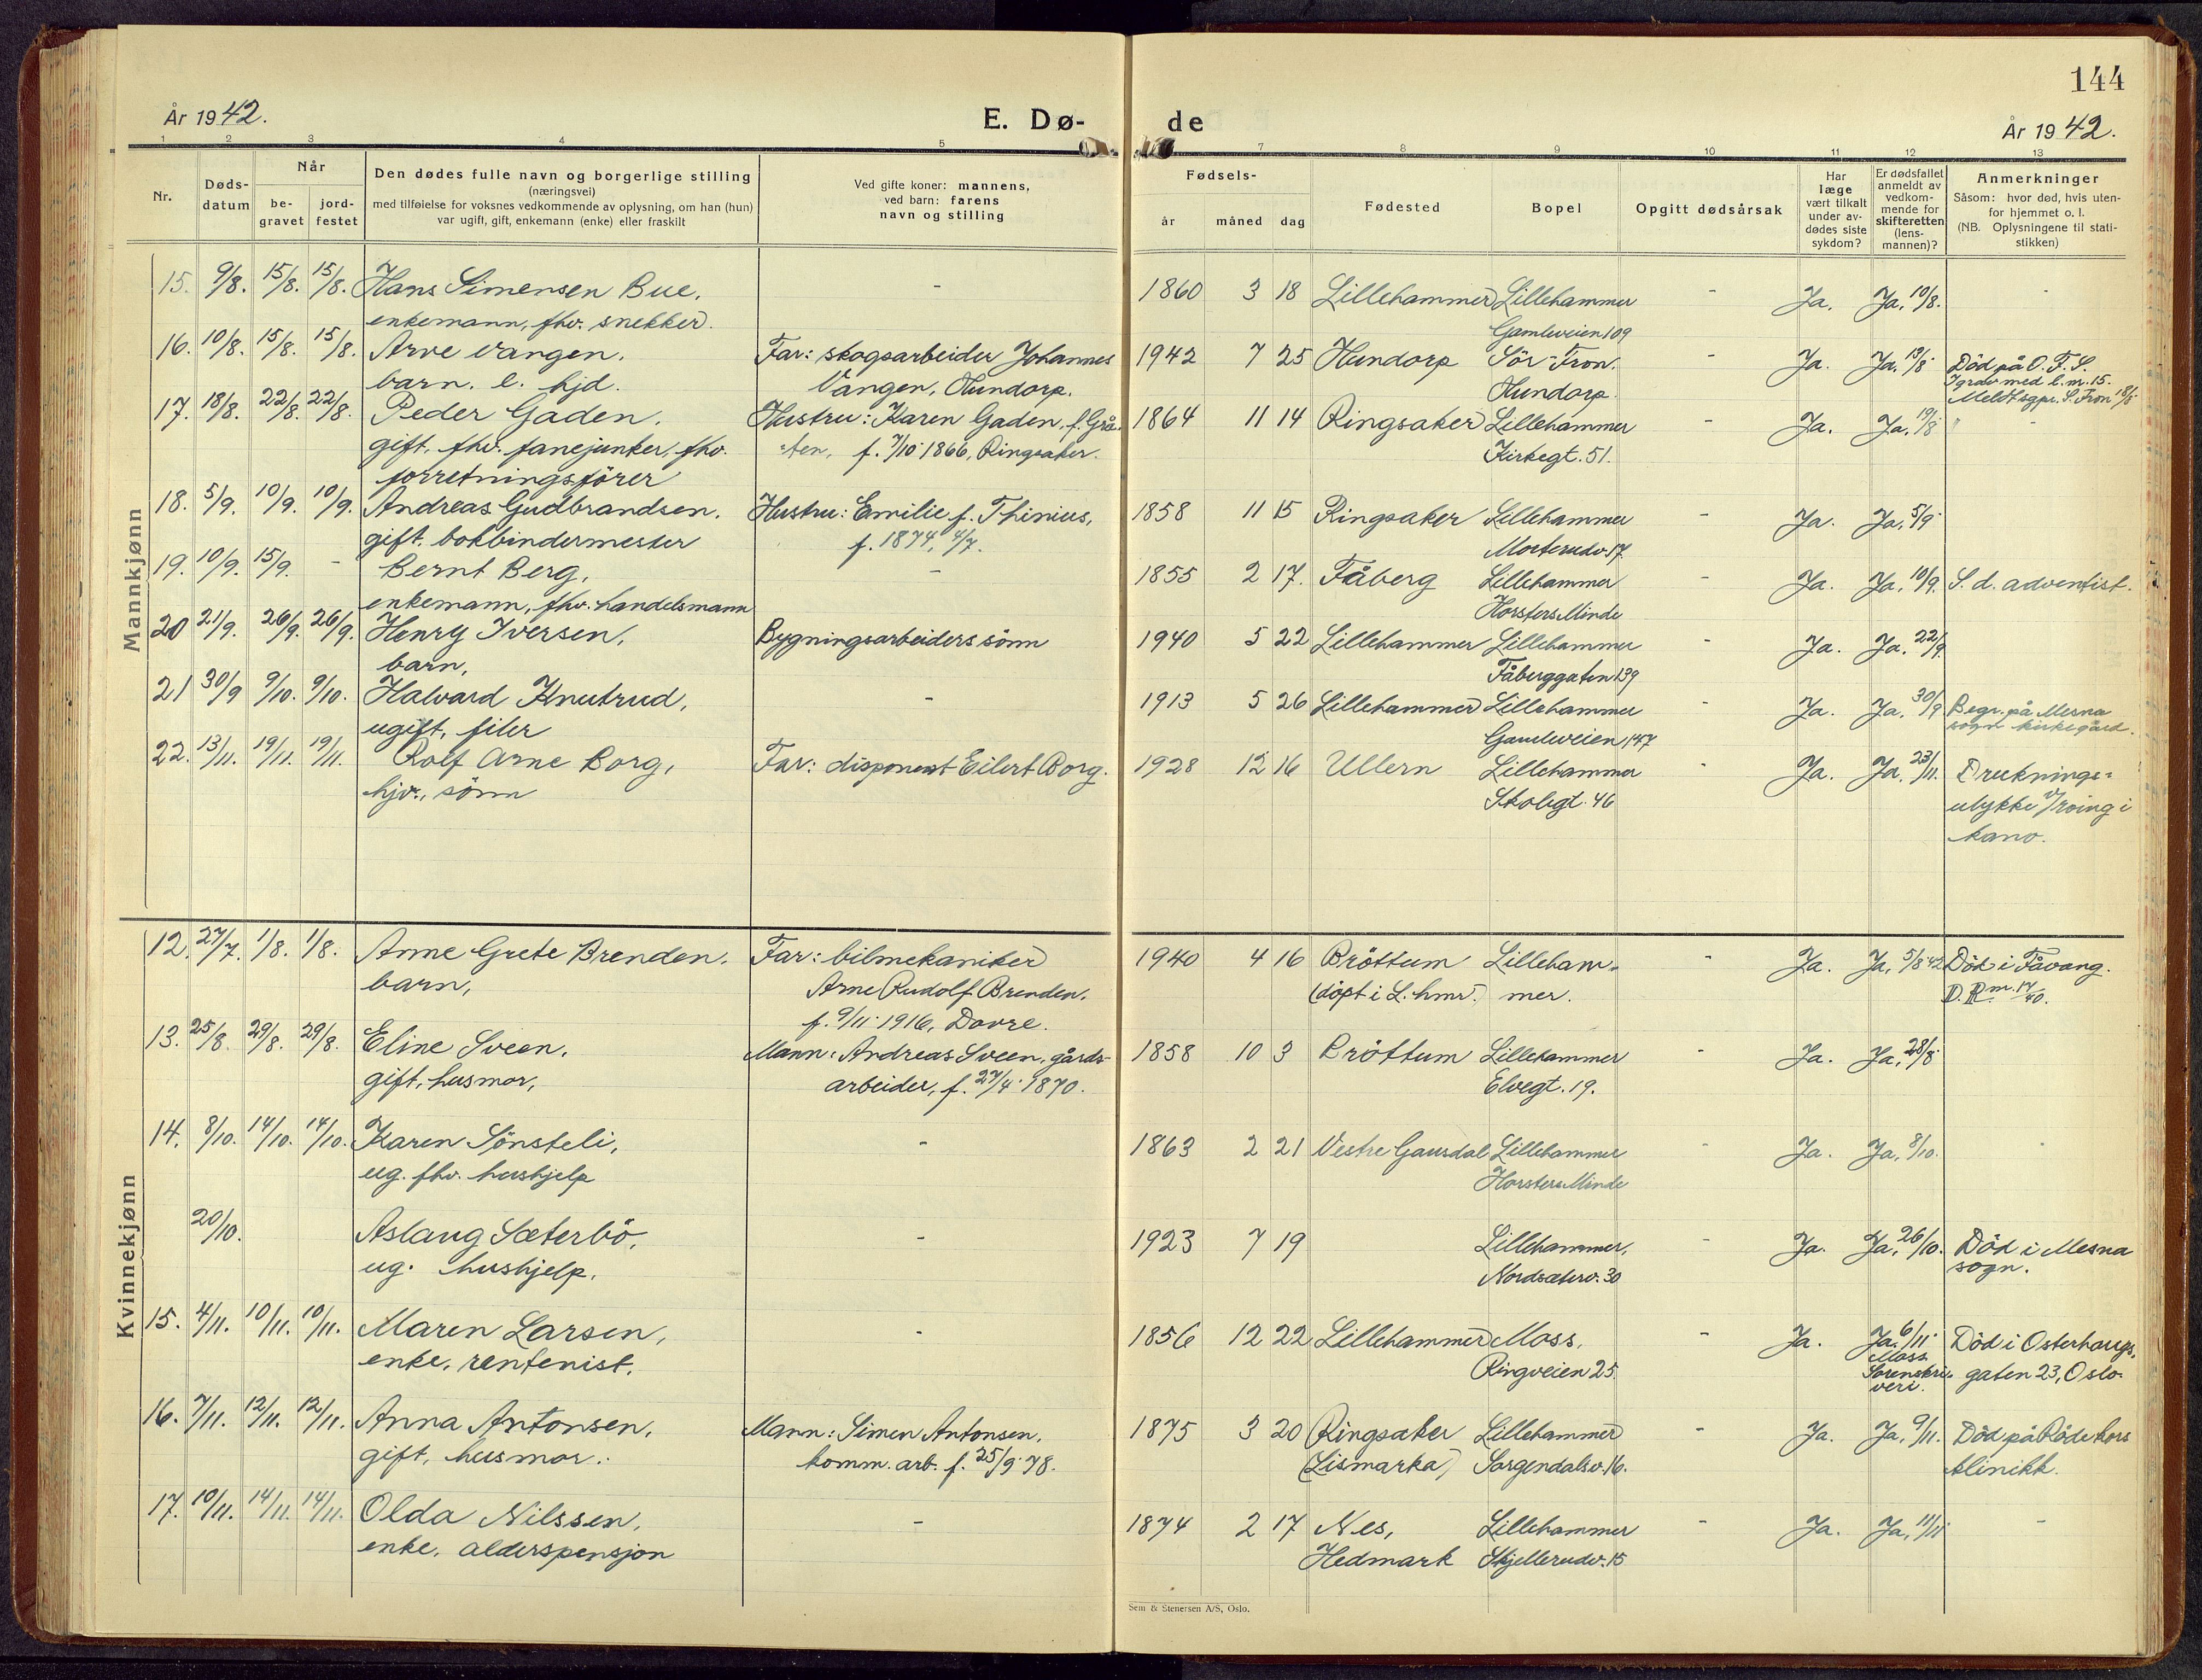 144
År 1942.
E. Dø-de
År 1942.
1 2 3 4 5 7 8 9 10 11 12 13
Nr.
Døds-
datum
Når
be-
gravet
jord-
festet
Den dødes fulle navn og borgerlige stilling
(næringsvei)
med tilføielse for voksnes vedkommende av oplysning, om han (hun)
var ugift, gift, enkemann (enke) eller fraskilt
Ved gifte koner: mannens,
ved barn: farens
navn og stilling
Fødsels-
år måned dag
Fødested
Bopel
Opgitt dødsårsak
Har
læge
vært tilkalt
under av-
dødes siste
sykdom?
Er dødsfallet
anmeldt av
vedkom-
mende for
skifteretten
(lens-
mannen)?
Anmerkninger
Såsom: hvor død, hvis uten-
for hjemmet o. l.
(NB. Oplysningene til stati-
stikken)
Mannkjønn
15. 9/8. 15/8. 15/8. Hans Simensen Bue, - 1860 3 18 Lillehammer Lillehammer - Ja. Ja, 10/8. -
enkemann, fhv. snekker. Gamleveien 109
16. 10/8. 15/8. 15/8. Arve Vangen, Far: skogsarbeider Johannes 1942 7 25 Hundorp Sör-Fron. - Ja. Ja, 19/8 Död på O. F. S.
barn. e. hjd. Vangen, Hundorp. Hundorp. I grav med l.m. 15.
Meldt sgpr. S. Fron 18/8
17. 18/8. 22/8. 22/8. Peder Gaden, Hustru: Karen Gaden, f. Grå- 1864 11 14 Ringsaker Lillehammer - Ja. Ja, 19/8 -
gift, fhv. fanejunker, fhv. sten, f. 7/10 1866, Ringsaker. Kirkegt. 51.
forretningsförer
18. 5/9. 10/9. 10/9. Andreas Gudbrandsen, Hustru: Emilie f. Thinius, 1858 11 15 Ringsaker Lillehammer - Ja. Ja, 5/9
gift, bokbindermester f. 1874, 4/7. Morterudv. 17
19. 10/9. 15/9. - Bernt Berg, - 1855 2 17. Fåberg Lillehammer - Ja. Ja, 10/9. S. d. adventist.
enkemann, fhv. handelsmann Horsters Minde
20 21/9. 26/9. 26/9. Henry Iversen, Bygningsarbeiders sönn 1940 5 22 Lillehammer Lillehammer - Ja. Ja, 22/9
barn, Fåberggaten 139
21 30/9 9/10. 9/10. Halvard Knutrud, - 1913 5 26 Lillehammer Lillehammer - Ja. Ja, 30/9 Begr. på Mesna
ugift, filer Gamleveien 147 sogn kirkegård.
22. 13/11. 19/11. 19/11. Rolf Arne Borg, Far: disponent Eilert Borg. 1928 12 16 Ullern Lillehammer - Ja. Ja, 23/11. Druknings-
hjv., sönn Skolegt. 46 ulykke v/ roing i
kano.
Kvinnekjønn
12. 27/7. 1/8. 1/8. Anne Grete Brenden, Far: bilmekaniker 1940 4 16 Bröttum Lilleham- - Ja. Ja, 5/8 42 Död i Fåvang.
barn, Arne Rudolf Brenden, (döpt i L.hmr.) mer. D. R. m. 17/40.
f. 9/11 1916, Dovre.
13. 25/8. 29/8. 29/8. Eline Sveen, Mann: Andreas Sveen, gårds- 1858 10 3 Bröttum Lillehammer - Ja. Ja, 28/8
gift, husmor, arbeider, f. 27/4 1870. Elvegt. 19.
14. 8/10. 14/10. 14/10. Karen Sönsteli, - 1863 2 21 Vestre Gausdal Lillehammer - Ja. Ja, 8/10. -
ug. fhv. hushjelp Horsters Minde
20/10. Aslaug Sæterbö, - 1923 7 19 Lillehammer, - Ja. Ja, 26/10. Död i Mesna
ug. hushjelp. Nordseterv. 30 sogn.
15. 4/11. 10/11. 10/11. Maren Larsen, - 1856 12 22 Lillehammer Moss, - Ja. Ja, 6/11 Död i Osterhaugs-
enke, rentenist. Ringveien 25. Moss Sorenskri-veri. gaten 23, Oslo.
16. 7/11. 12/11. 12/11. Anna Antonsen, Mann: Simen Antonsen, 1875 3 20 Ringsaker Lillehammer - Ja. Ja, 9/11. Död på Röde kors
gift, husmor. komm. arb. f. 25/9 78. (Lismarka) Sorgendalsv. 16. klinikk.
17. 10/11. 14/11. 14/11. Olda Nilssen, - 1874 2 17 Nes, Lillehammer - Ja. Ja, 11/11 -
enke, alderspensjon Hedmark Skjellerudv. 15
Sem & Stenersen A/S, Oslo.